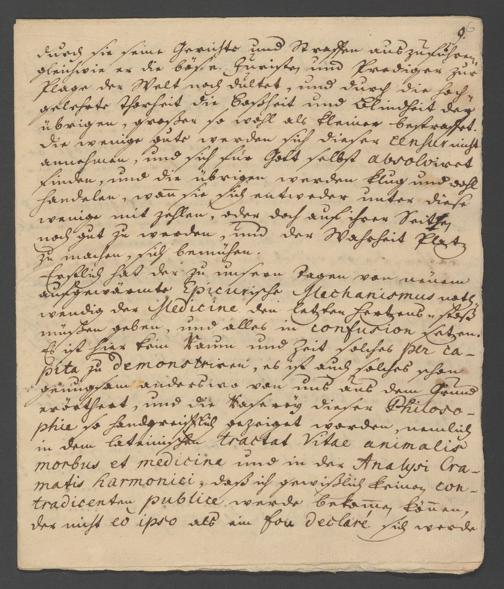 9.
durch sie seine Gerichte und Straffen auszuführen,
gleichwie er die böse Juristen und Prediger zur
Plage der Welt noch dultet, und durch die hoch-
gelehrte Thorheit die Boßheit und Blindheit der
übrigen, großer so wohl als kleiner bestraffet.
die wenige gute werden sich dieser censur nicht
annehmen, und sich für Gott selbst absolviret
finden, und die übrigen werden klug und wohl
handelen, wan sie sich entweder unter diese
wenige mit zehlen, oder doch auf ihrer Seiten
noch gut zu werden, und der Wahrheit Platz
zu machen, sich bemühen.
Erstlich hat der zu unsern Tagen von neuem
aufgewärmte Epicurische Mechanismus noth-
wendig der Medicine den letzten Hertzens-stoß
müßen geben, und alles in confusion setzen.
Es ist hier kein Raum und Zeit solches per ca-
pita zu demonstriren, es ist auch solches schon
genungsam anderswo von uns aus dem Grund
erörthert, und die Raserey dieser Philoso-
phie so handgreifflich gezeiget worden, nemlich
in dem lateinischen tractat Vitae animalis
morbus et medicina und in der Analysi Cra-
matis harmonici, daß ich gewißlich keinen con-
tradicenten publice werde bekom̅en können,
der nicht eo ipso als ein fou declaré sich werde